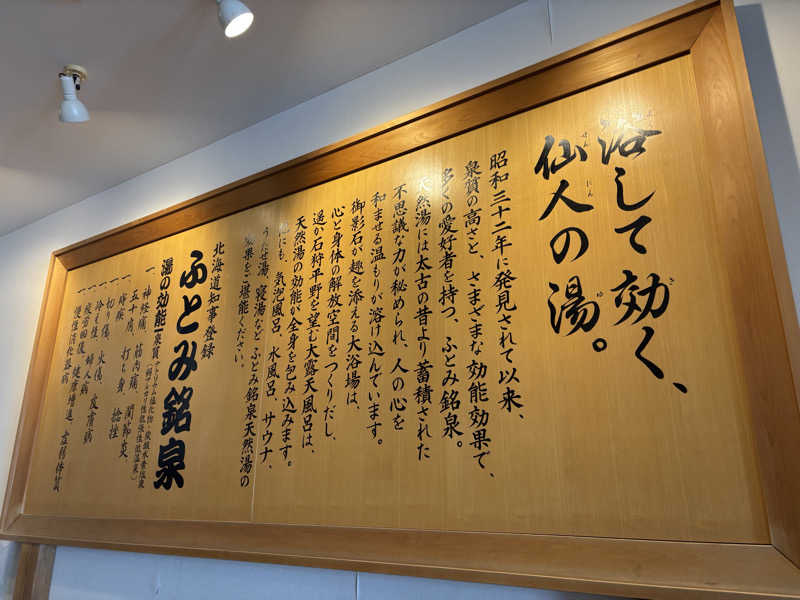 浴して効く、
仙人の湯。
昭和三十二年に発見されて以来、
泉質の高さと、さまざまな効能効果で、
多くの愛好者を持つ、ふとみ銘泉。
天然湯には太古の昔より蓄積された
不思議な力が秘められ、人の心を
和ませる温もりが溶け込んでいます。
御影石が趣を添える大浴場は、
心と身体の解放空間をつくりだし、
遥か石狩平野を望む大露天風呂は、
天然湯の効能が全身を包み込みます。
他にも、気泡風呂、水風呂、サウナ、
うたせ湯、寝湯など ふとみ銘泉天然湯の
効果をご堪能ください。
北海道知事登録
ふとみ銘泉
湯の効能 泉質
一、神経痛、筋肉痛、関節炎
五十肩、打ち身、捻挫
一、痔疾
一、切り傷、火傷、皮膚病
一、冷え性、婦人病
一、疲労回復、健康増進、虚弱体質
一、慢性消化器病